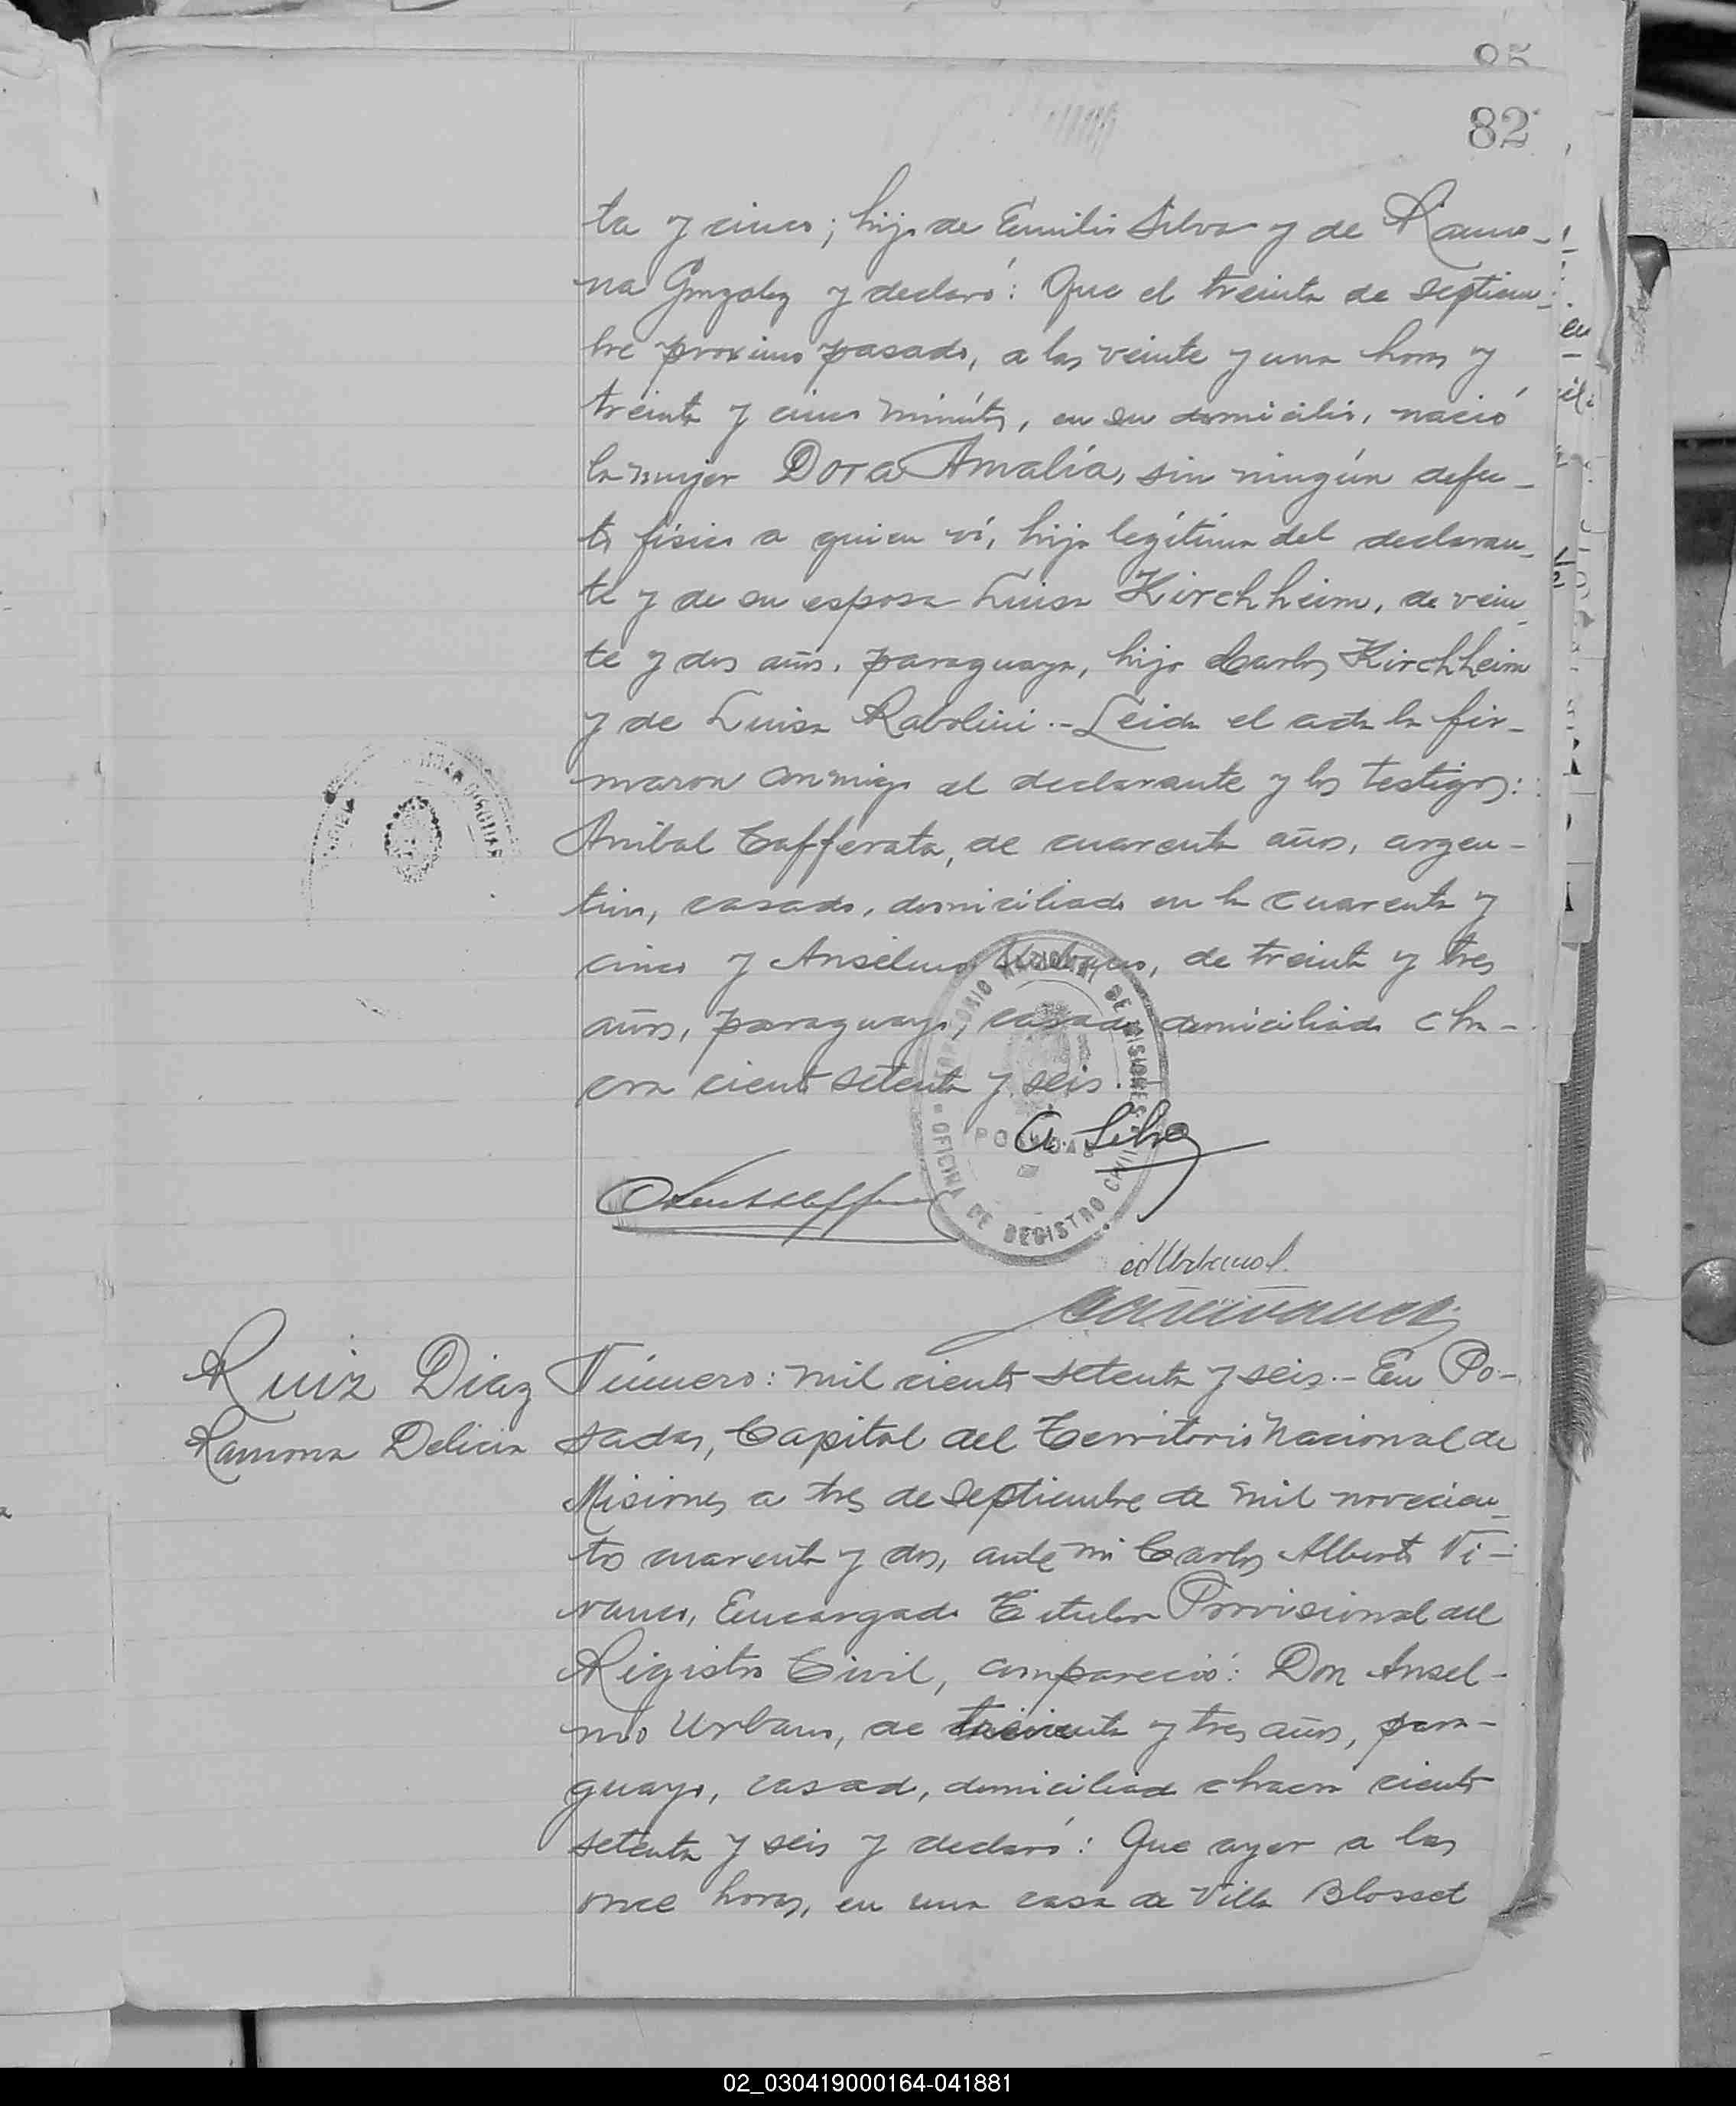 85
82
ta y cinco; hijo de Emilio Silva y de Ramo-
na Gonzalez y declaró: Que el treinta de septiem-
bre proximo pasado, a las veinte y una horas y
treinta y cinco minútos, en su domicilio, nació
la mujer Dora Amalia, sin ningún defec-
to físico a quien ví, hija legítima del declaran-
te y de su esposa Luisa Kirchheim, de vein-
te y dos años, paraguaya, hija Carlos Kirchheim
y de Luisa Rabolini.- Leida el acta la fir-
maron conmigo el declarante y los testigos:
Anibal Cafferata, de cuarenta años, argen-
tino, casado, domiciliado en la cuarenta y
cinco y Anselmo Urbano, de treinta y tres
años, paraguayo, casado domiciliado cha-
cra ciento setenta y seis.-
TERRITORIO NACIONAL DE MISIONES
OFICINA DE REGISTRO CIVIL
POSADAS
A. Silva
A Urbano
Ruiz Diaz
Ramona Delicia
Número: mil ciento setenta y seis.- En Po-
sadas, Capital del Territorio Nacional de
Misiones a tres de septiembre de mil novecien-
tos cuarenta y dos, ante mi Carlos Alberto Vi-
vanco, Encargado Titular Provisional del
Registro Civil, compareció: Don Ansel-
mo Urbano, de treinta y tres años, para-
guayo, casad, domiciliado chacra ciento
setenta y seis y declaró: Que ayer a las
once horas, en una casa de Villa Blosset
02_030419000164-041881